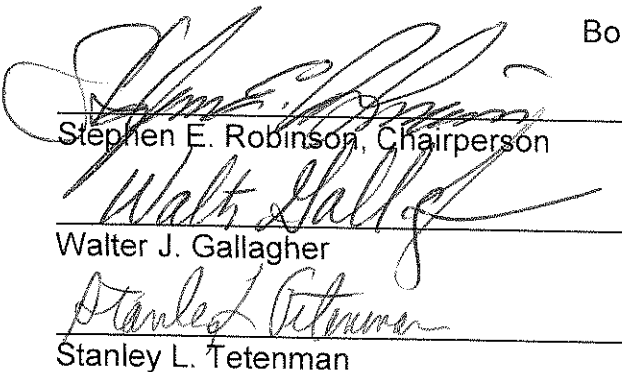 Bo
Stephen E. Robinson, Chairperson
Walter Gallag
Walter J. Gallagher
Stanley L Tetenman
Stanley L. Tetenman